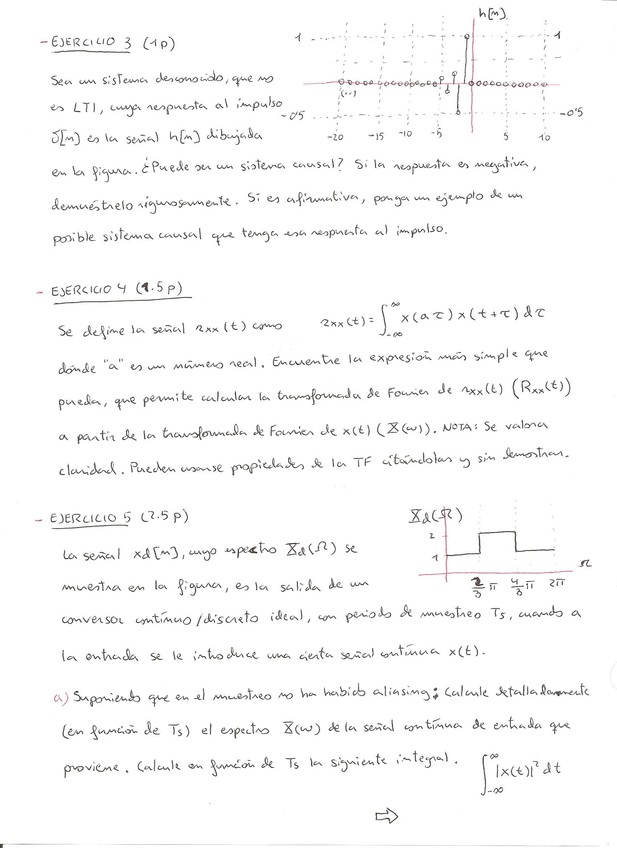 h[n]
- EJERCICIO 3 (1p)
1
1
Sea un sistema desconocido, que no
es LTI, cuya respuesta al impulso
(...)
-0'5
-0'5
δ[n] es la señal h[n] dibujada
-20 -15 -10 -5 5 10
en la figura. ¿Puede ser un sistema causal? Si la respuesta es negativa,
demuéstrelo rigurosamente. Si es afirmativa, ponga un ejemplo de un
posible sistema causal que tenga esa respuesta al impulso.
- EJERCICIO 4 (1.5p)
Se define la señal rxx(t) como rxx(t) = ∫_{-∞}^{∞} x(aτ) x(t+τ) dτ
donde "a" es un número real. Encuentre la expresión más simple que
pueda, que permite calcular la transformada de Fourier de rxx(t) (Rxx(t))
a partir de la transformada de Fourier de x(t) (X(ω)). NOTA: Se valora
claridad. Pueden usarse propiedades de la TF citándolas y sin demostrar.
- EJERCICIO 5 (2.5p)
Xd(Ω)
2
1
Ω
2/3 π 4/3 π 2π
La señal xd[n], cuyo espectro Xd(Ω) se
muestra en la figura, es la salida de un
conversor contínuo/discreto ideal, con periodo de muestreo Ts, cuando a
la entrada se le introduce una cierta señal contínua x(t).
a) Suponiendo que en el muestreo no ha habido aliasing: Calcule detalladamente
(en función de Ts) el espectro X(ω) de la señal contínua de entrada que
proviene. Calcule en función de Ts la siguiente integral. ∫_{-∞}^{∞} |x(t)|² dt
⇨